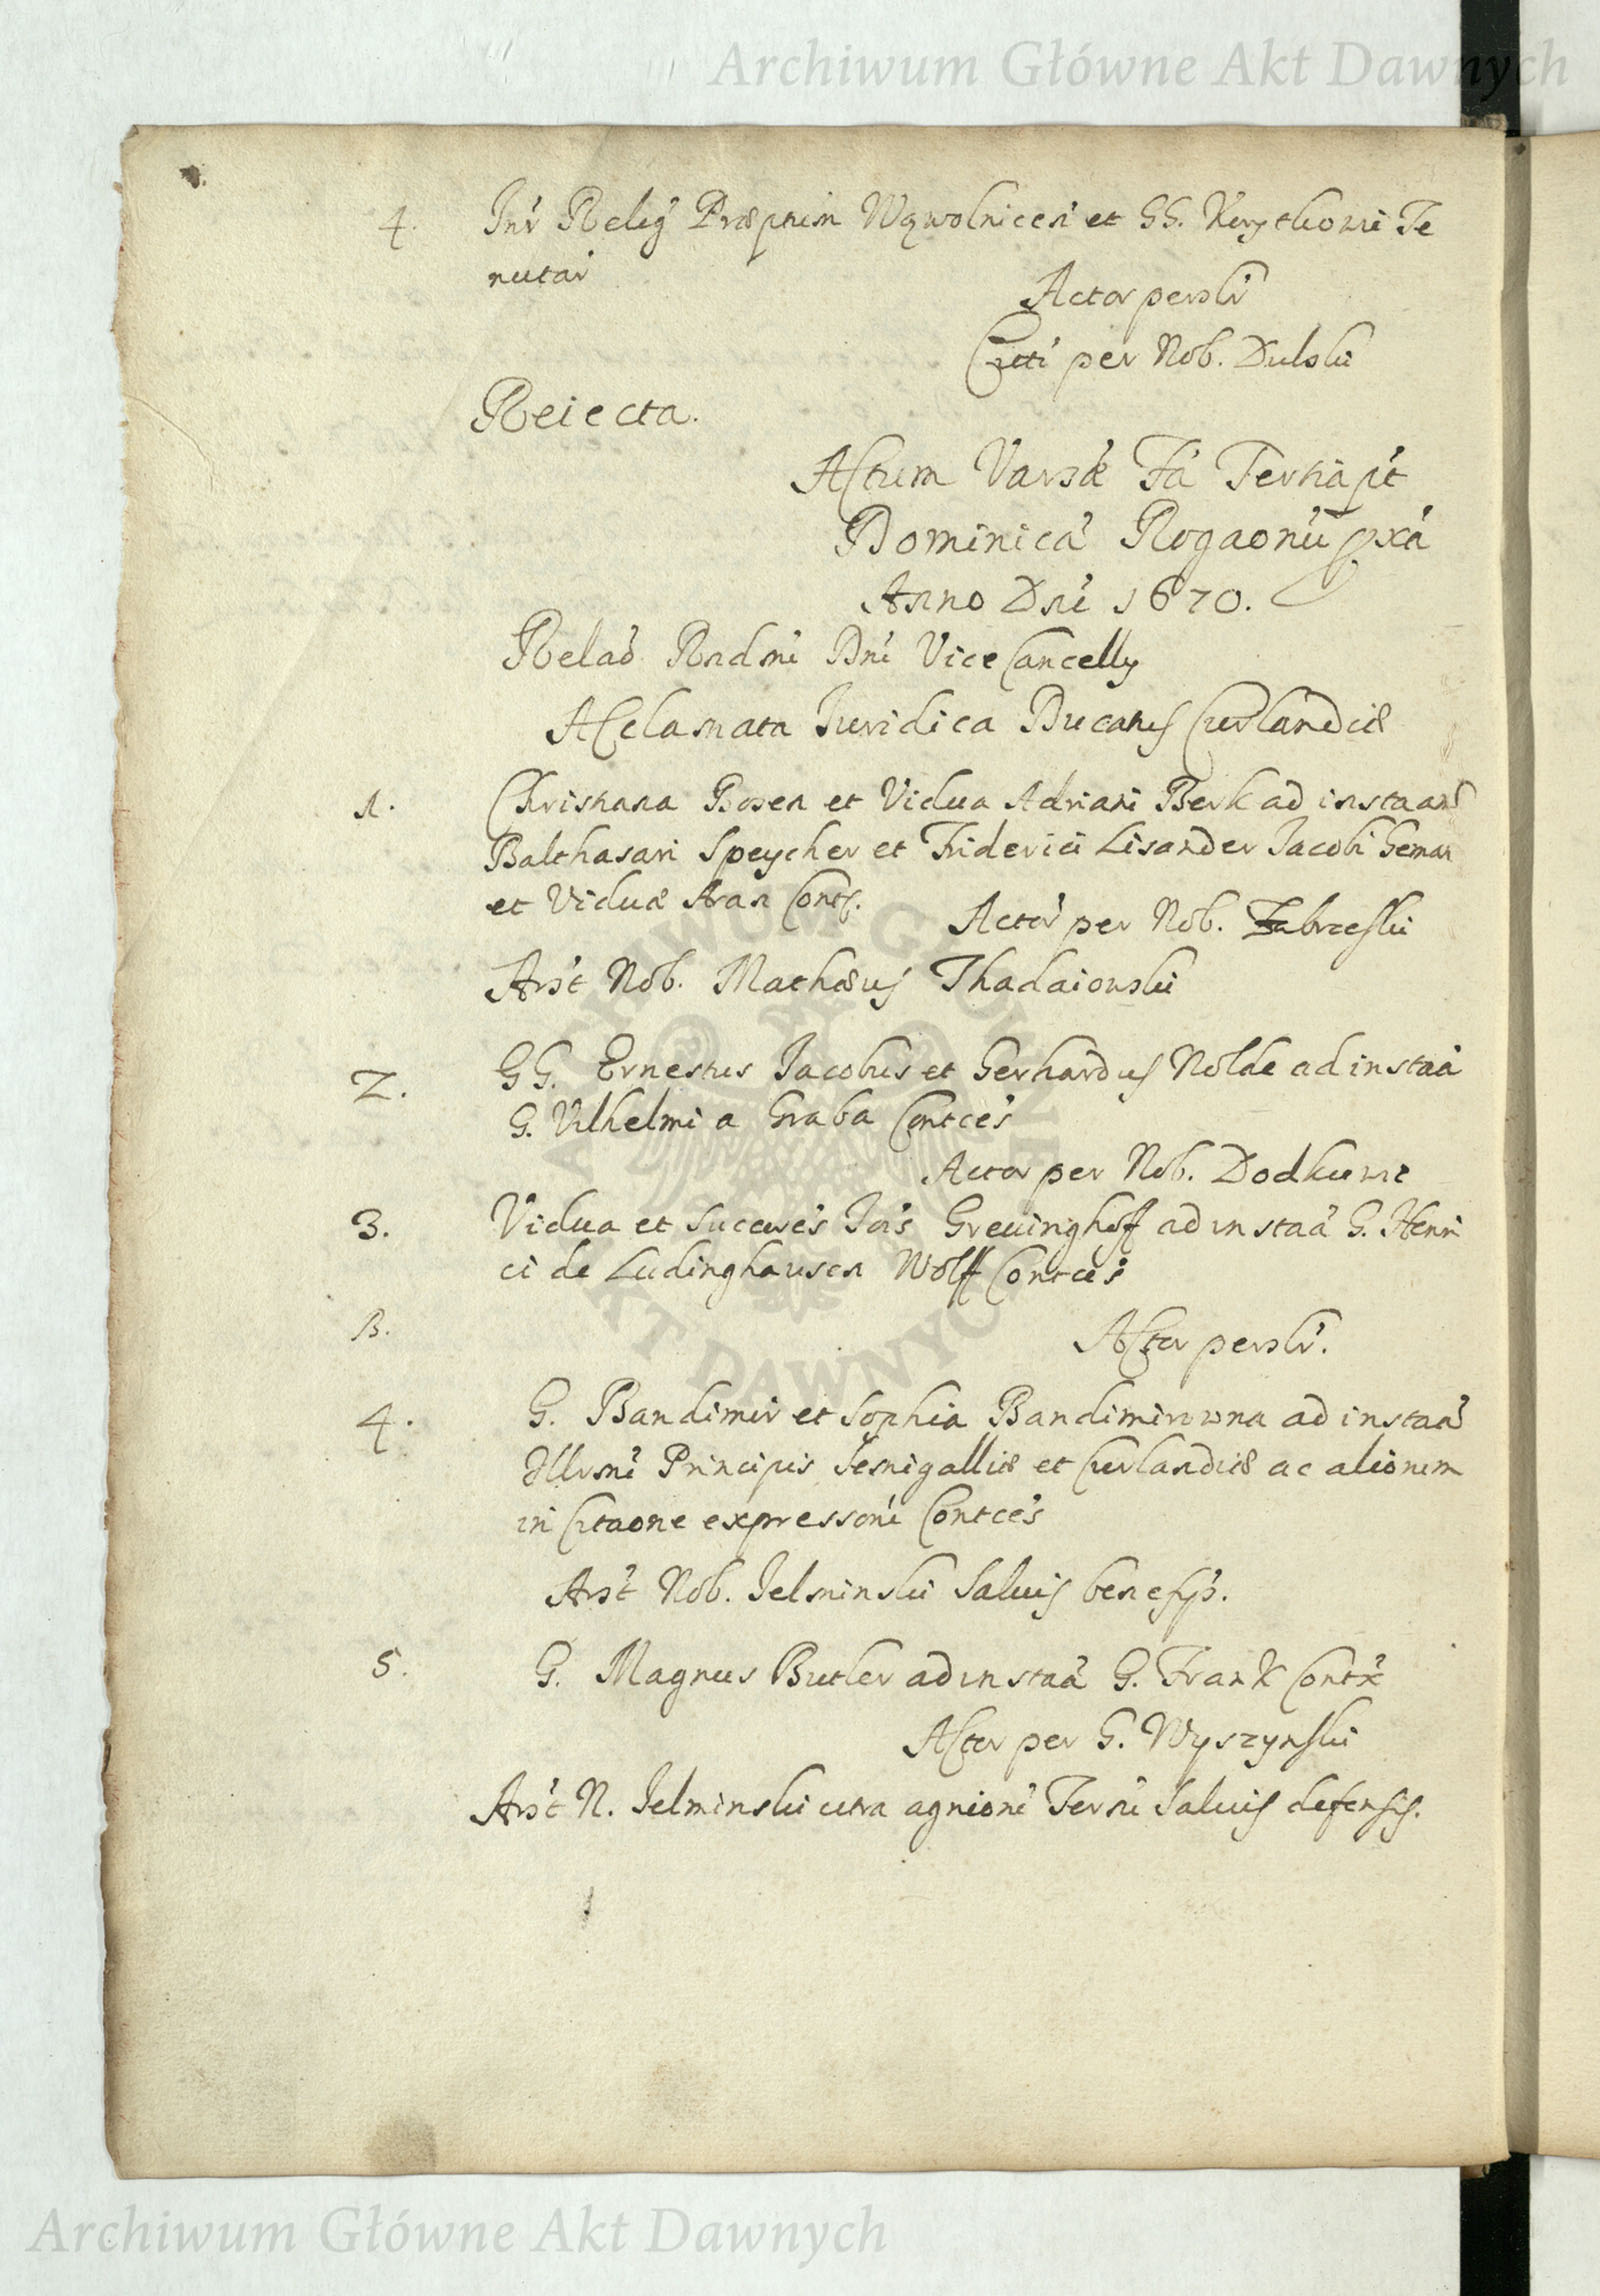 Archiwum Główne Akt Dawnych
4. Inr Relig Præptum Wąwolnicen et GG. Krytkowi Te
nutar
Actor persl'r
Citti per Nob. Dulski
Reiecta.
Actum Varsæ Fa Tertia pt
Dominicā Rogaonū pxā
Anno Dni 1670.
Relaō Rndmi Dni Vice Cancelly
Acclamata Iuridica Ducatus Curlandiæ
1. Christiana Bosen et Vidua Adriani Berk ad instaām
Balthasari Speycher et Friderici Lisander Jacobi Heman
et Viduæ Aran Contt.
Actor per Nob. Zabrzeski
Arst Nob. Mathæus Thadaiowski
2. GG. Ernestus Jacobus et Gerhardus Nolde ad instaā
G. Vilhelmi a Graba Contces
Actor per Nob. Dodkuwie
3. Vidua et Succeses Iois Greuinghoff ad instaā G. Henri
ci de Ludinghausen Wolff Contces
B. Actor perslr.
4. G. Bandimir et Sophia Bandimirowna ad instaā
Illrmi Principis Semigalliæ et Curlandiæ ac aliorum
in Citaone expressoru Contces
Arst Nob. Jelminski Saluis benefys.
5. G. Magnus Butler ad instaā G. Frank Contx
Actor per G. Wyszynski
Arst N. Jelminski citra agnionē Terni Saluis defensis.
ARCHIWUM GŁÓWNE
AKT DAWNYCH
Archiwum Główne Akt Dawnych